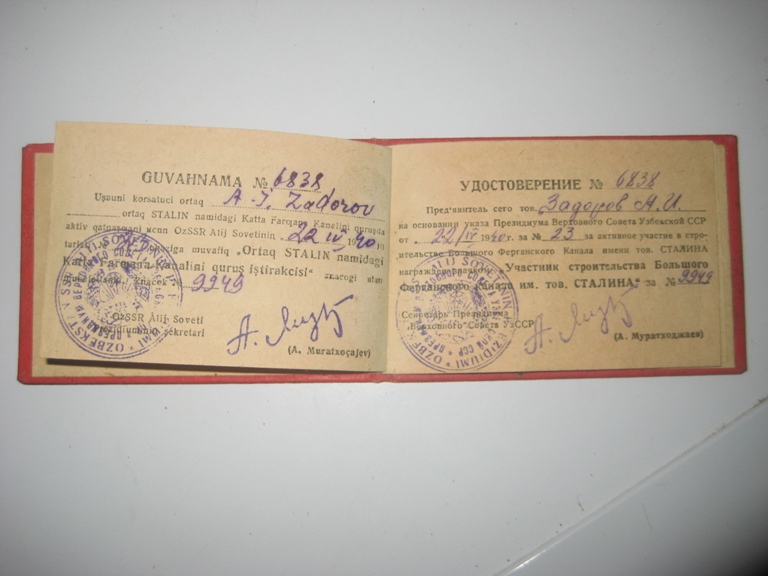 GUVAHNAMA № 6838
Uşʙuni korsatuci ortaq A. I. Zadorov
ortaq STALIN namidagi Katta Farqana Kanalini quruşda
aktiv qatnaşqani ucun OzSSR Alij Sovetinin 22 IV 40
muvafiq „Ortaq STALIN namidagi
Katta Farqana Kanalini quruş iştirakcisi“ znacogi ʙilan
Znacek 9949
OzSSR Alij Soveti
Prezidiumining sekretari
(A. Muratxoçajev)
УДОСТОВЕРЕНИЕ № 6838
Пред'явитель сего тов. Задоров А.И.
на основании указа Президиума Верховного Совета Узбекской ССР
от 22/IV 1940 г. за № 23 за активное участие в стро-
ительстве Большого Ферганского Канала имени тов. СТАЛИНА
награжден значком „Участник строительства Большого
Ферганского Канала им. тов. СТАЛИНА“ за № 9949
Секретарь Президиума
Верховного Совета УзССР
(А. Муратходжаев)